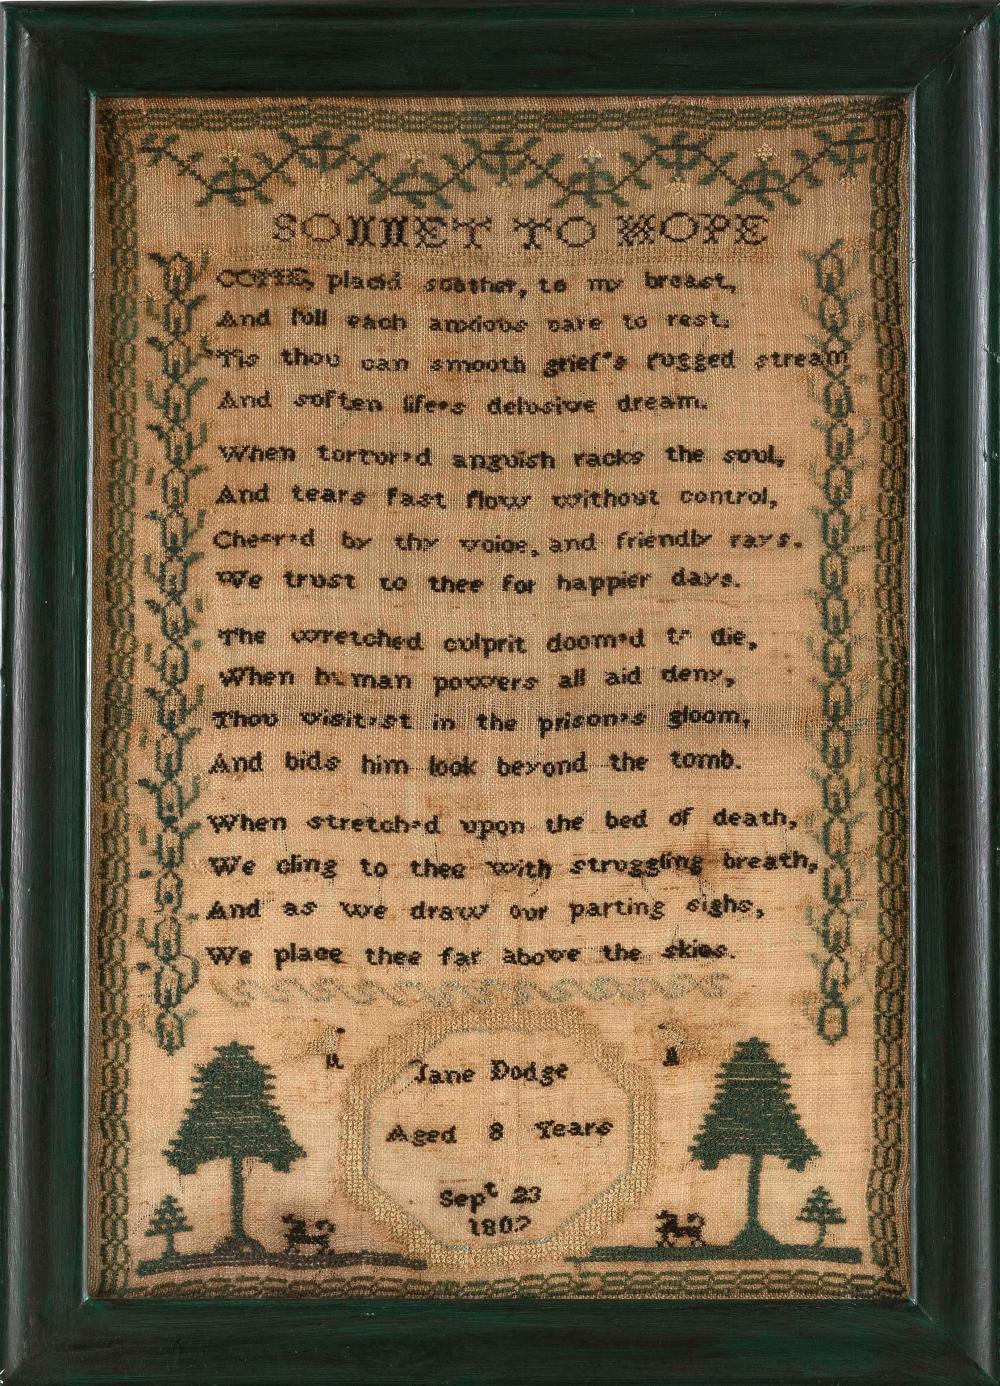 SONNET TO HOPE
COME, placid soother, to my breast,
And loll each anxious care to rest.
'Tis thou can smooth grief's rugged stream
And soften life's delusive dream.
When tortur'd anguish racks the soul,
And tears fast flow without control,
Cheer'd by thy voice, and friendly rays.
We trust to thee for happier days.
The wretched culprit doom'd to die,
When human powers all aid deny,
Thou visit'st in the prison's gloom,
And bids him look beyond the tomb.
When stretch'd upon the bed of death,
We cling to thee with struggling breath,
And as we draw our parting sighs,
We place thee far above the skies.
Jane Dodge
Aged 8 Years
Sept 23
1802